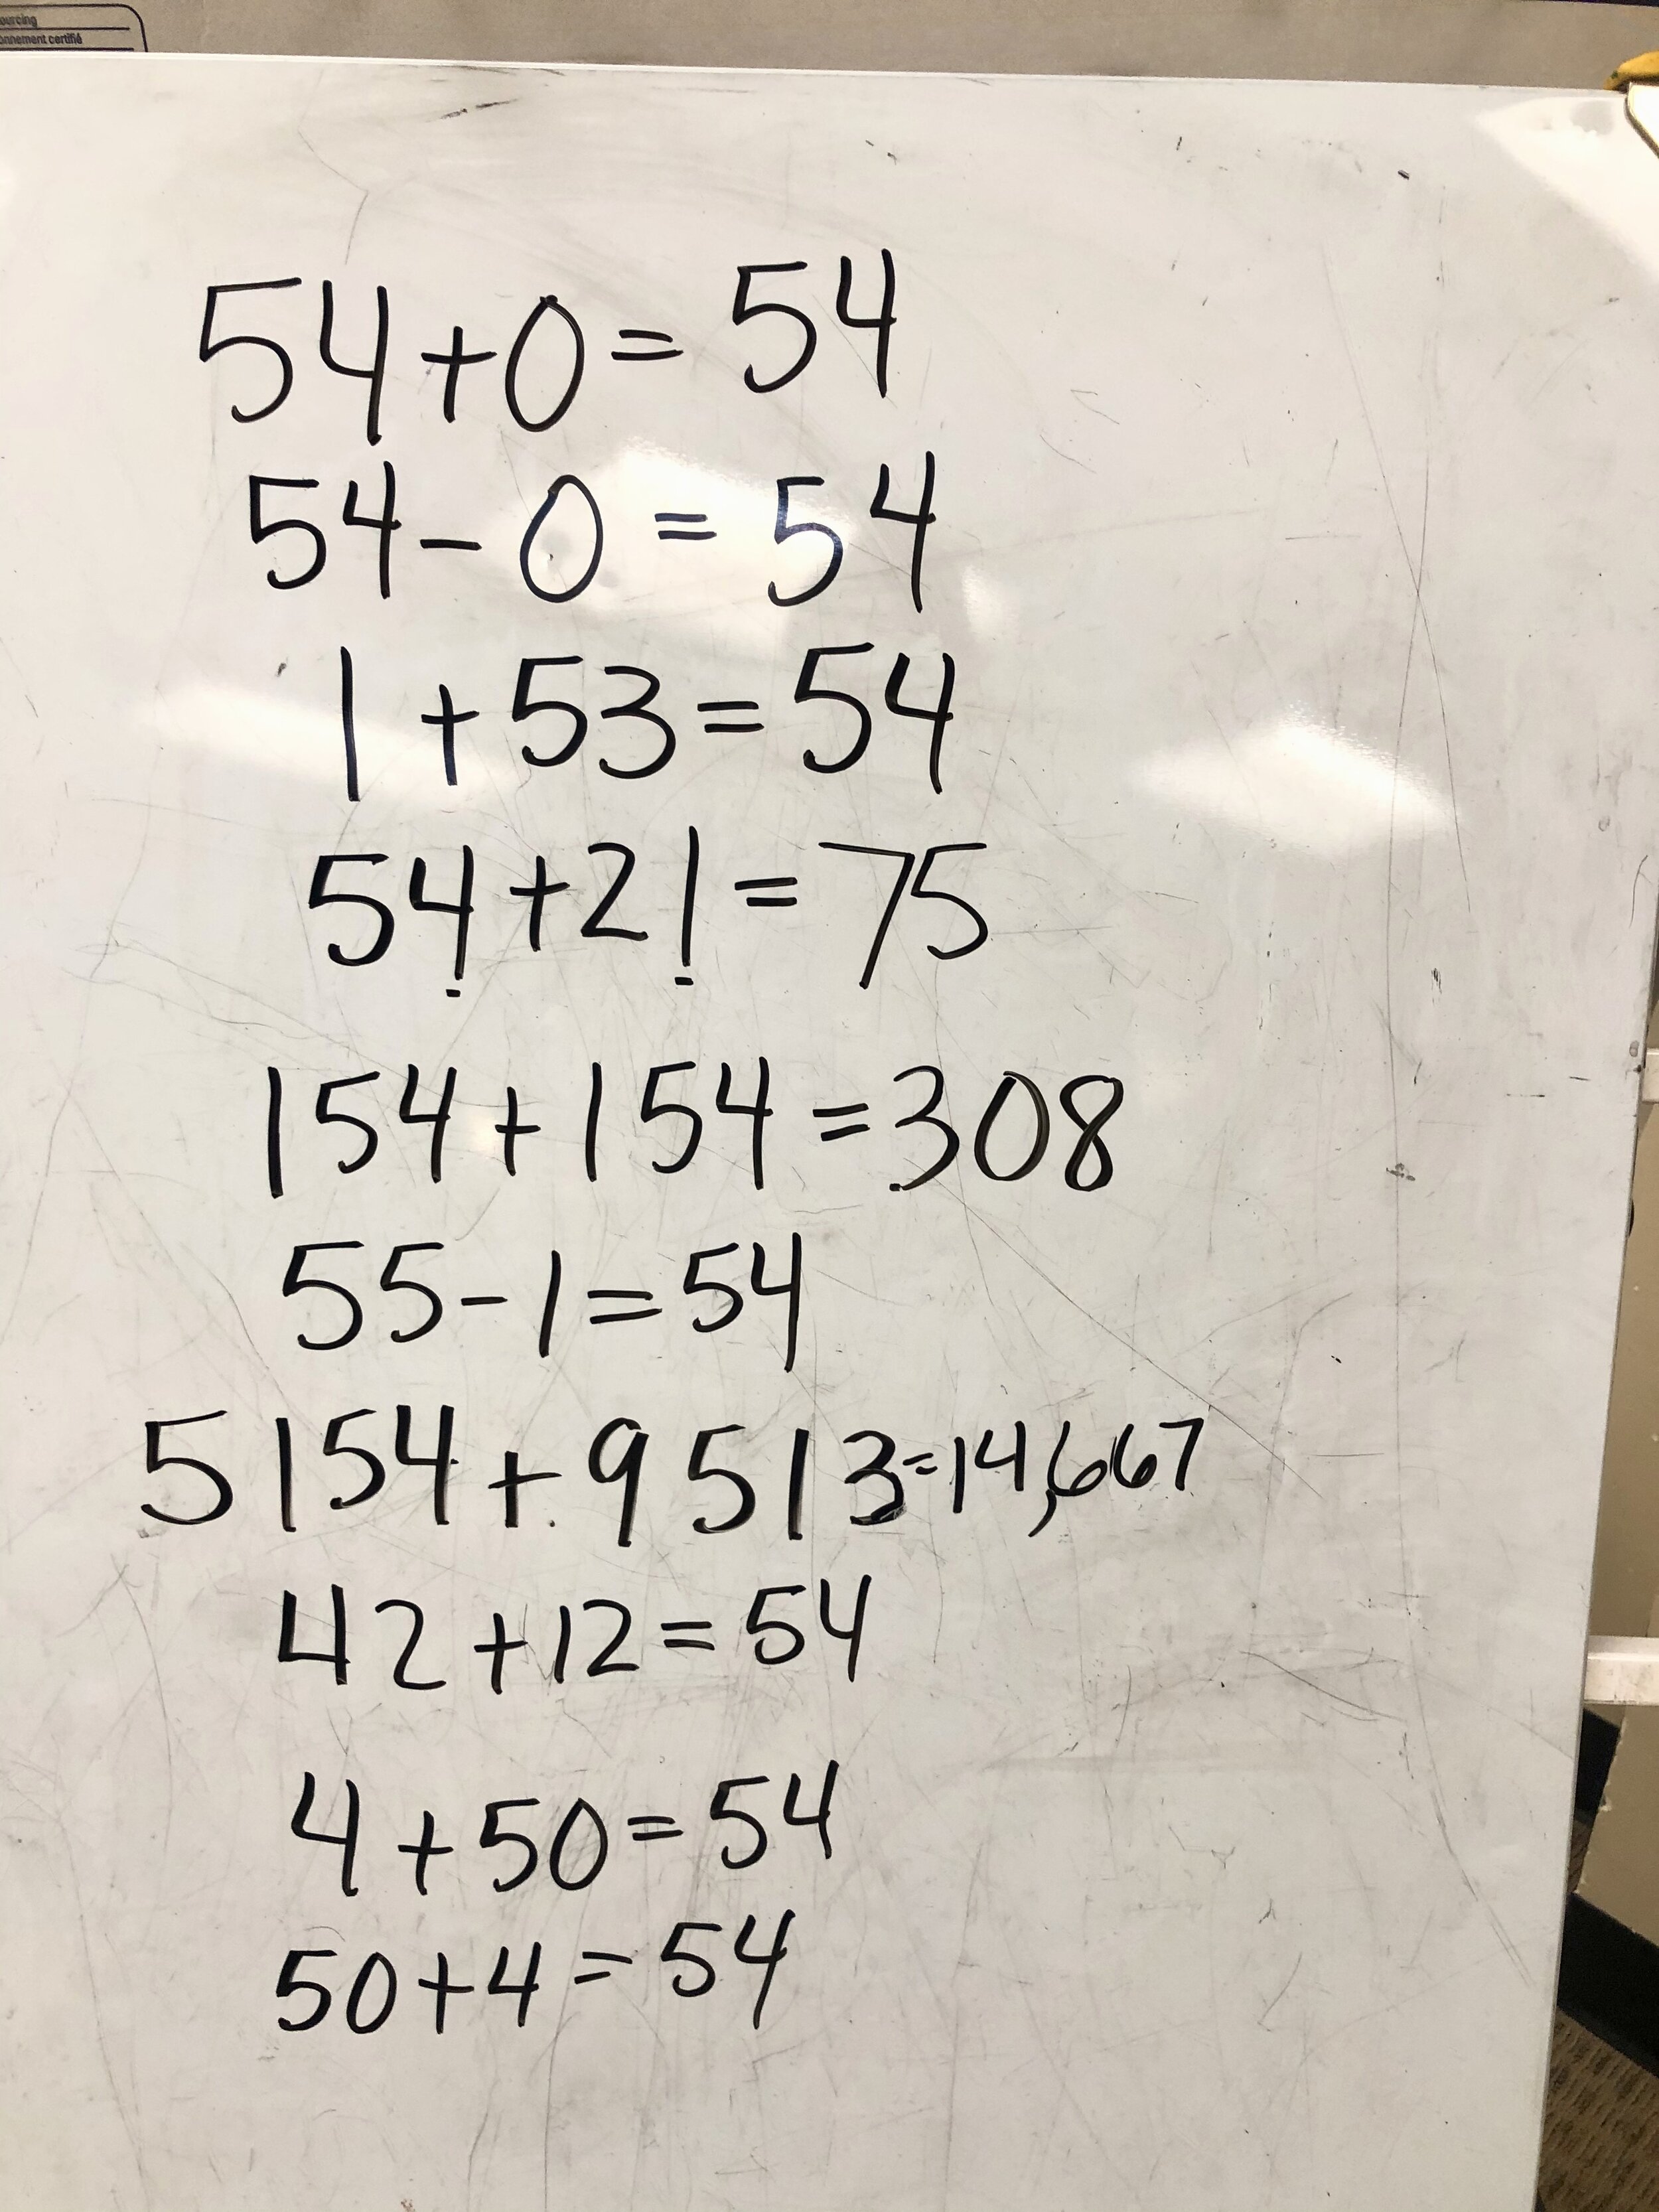 ourcing
onnement certifié
54+0=54
54-0=54
1+53=54
54+21=75
154+154=308
55-1=54
5154+9513=14,667
42+12=54
4+50=54
50+4=54